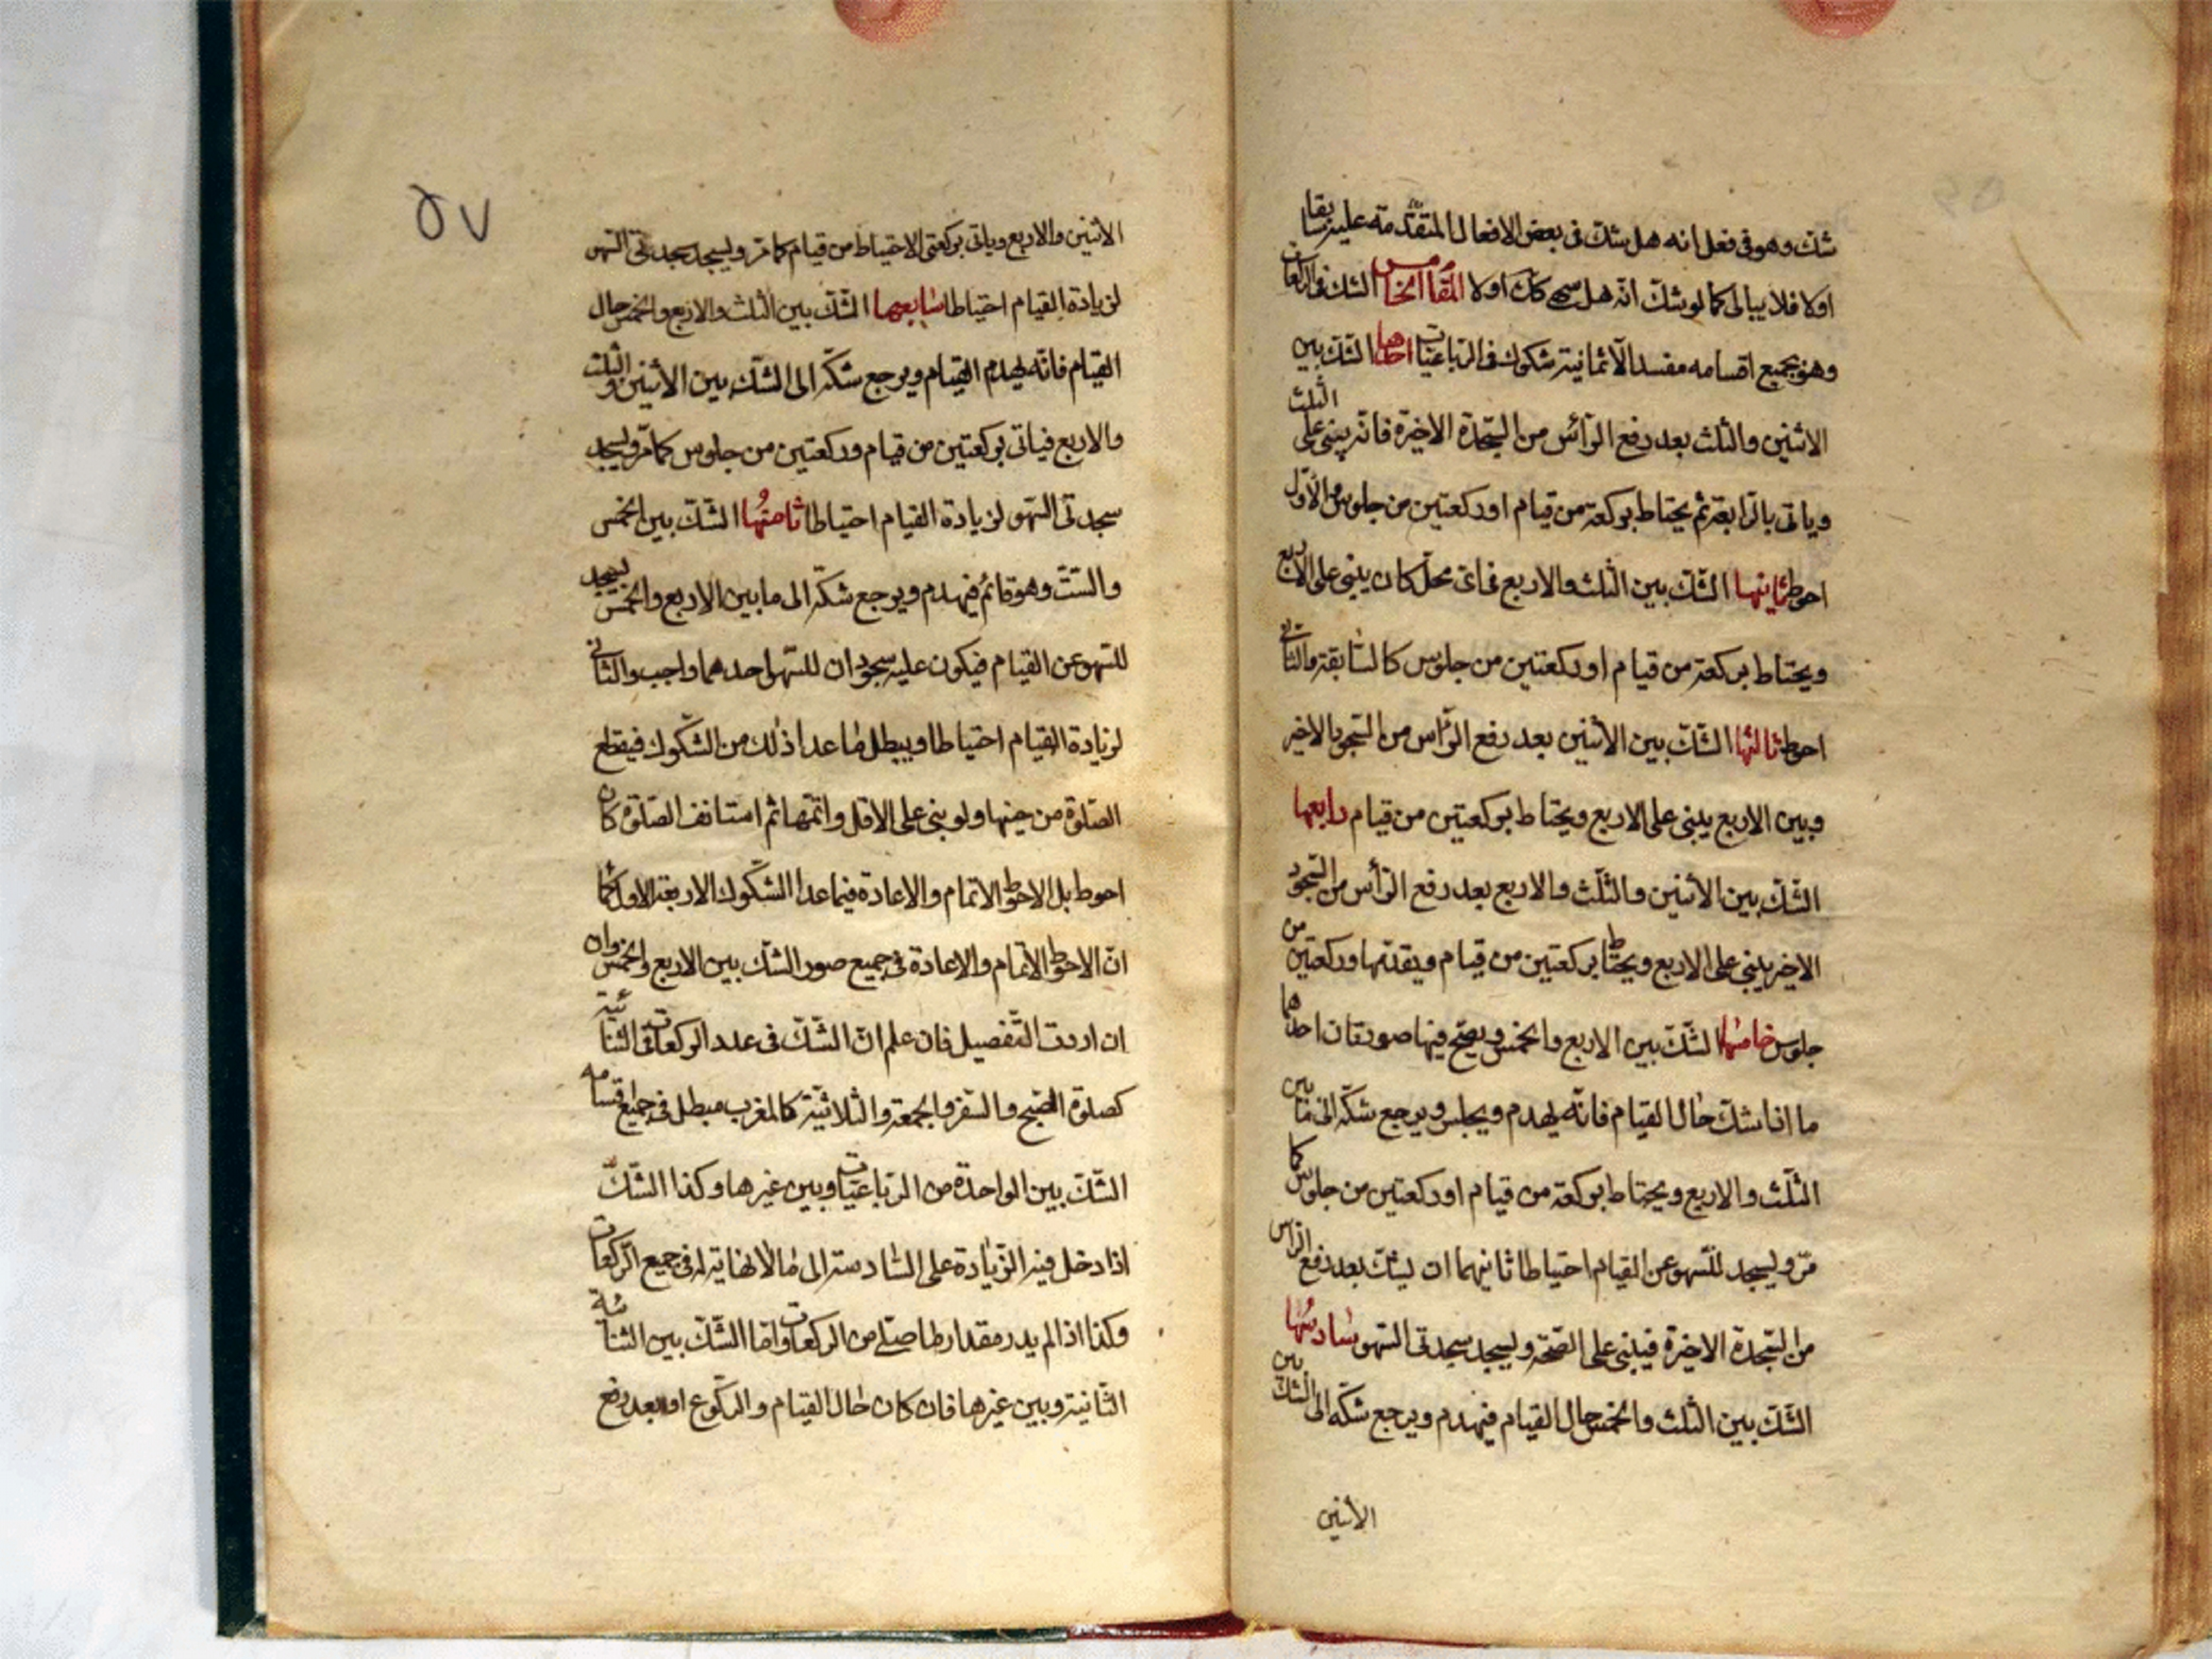 شك وهو فى فعل انه هل شك فى بعض الافعال المتقدمة عليه سابقا
اولا فلا يبالى كما لو شك انه هل سهى كك اولا المقام الخامس الشك فى الركعات
وهو بجميع اقسامه مفسد الا ثمانية شكوك فى الرباعيات احدها الشك بين
الاثنين والثلث بعد رفع الراس من السجدة الاخيرة فانه يبنى على الثلث
وياتى بالرابعة ثم يحتاط بركعة من قيام او ركعتين من جلوس والاول
احوط ثانيها الشك بين الثلث والاربع فى اى محل كان يبنى على الاربع
ويحتاط بركعة من قيام او ركعتين من جلوس كالسابقة والثانى
احوط ثالثها الشك بين الاثنين بعد رفع الراس من السجود الاخير
وبين الاربع يبنى على الاربع ويحتاط بركعتين من قيام رابعها
الشك بين الاثنين والثلث والاربع بعد رفع الراس من السجود
الاخير يبنى على الاربع ويحتاط بركعتين من قيام ويقدتها وركعتين من
جلوس خامسها الشك بين الاربع والخمس ويصح فيها صورتان احدهما
ما اذا شك حال القيام فانه يهدم ويجلس ويرجع شكه الى ما بين
الثلث والاربع ويحتاط بركعة من قيام او ركعتين من جلوس كما
مر ويسجد للسهو عن القيام احتياطا ثانيهما ان يشك بعد رفع الراس
من السجدة الاخيرة فيبنى على الصحة ويسجد سجدتى السهو سادسها
الشك بين الثلث والخمس حال القيام فيهدم ويرجع شكه الى الشك بين
الاثنين
٥٧
الاثنين والاربع وياتى بركعتى الاحتياط من قيام كما مر ويسجد سجدتى السهو
لزيادة القيام احتياطا سابعها الشك بين الثلث والاربع والخمس حال
القيام فانه يهدم القيام ويرجع شكه الى الشك بين الاثنين والثلث
والاربع فياتى بركعتين من قيام وركعتين من جلوس كما مر ويسجد
سجدتى السهو لزيادة القيام احتياطا ثامنها الشك بين الخمس
والست وهو قائم فيهدم ويرجع شكه الى ما بين الاربع والخمس يسجد
للسهو عن القيام فيكون عليه سجودان للسهو احدهما واجب والثانى
لزيادة القيام احتياطا ويبطل ما عدا ذلك من الشكوك فيقطع
الصلوة من حينها ولو بنى على الاقل واتمها ثم استانف الصلوة كان
احوط بل الاحوط الاتمام والاعادة فيما عدا الشكوك الاربعة الاول كما
ان الاحوط الاتمام والاعادة فى جميع صور الشك بين الاربع والخمس وان
ان اردت التفصيل فان علم ان الشك فى عدد الركعات فى الثنائية
كصلوة الصبح والسفر والجمعة والثلاثية كالمغرب مبطل فى جميع اقسامه
الشك بين الواحدة من الرباعيات وبين غيرها وكذا الشك
اذا دخل فيه الزيادة على السادسة الى ما لا نهاية له فى جميع الركعات
وكذا اذا لم يدر مقدار ما صلى من الركعات واما الشك بين الثنائية
الثانية وبين غيرها فان كان حال القيام والركوع او بعد رفع